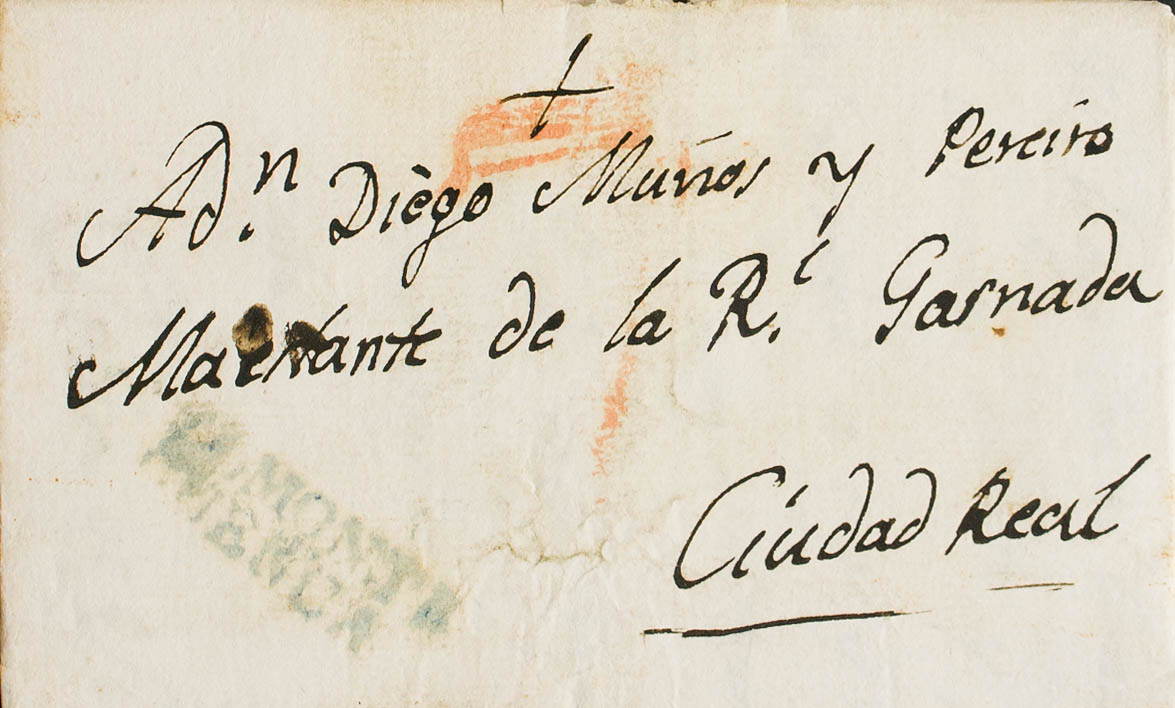 A Dn. Diego Muños y Pereiro
de la Rl. Garnada
Ciudad Real